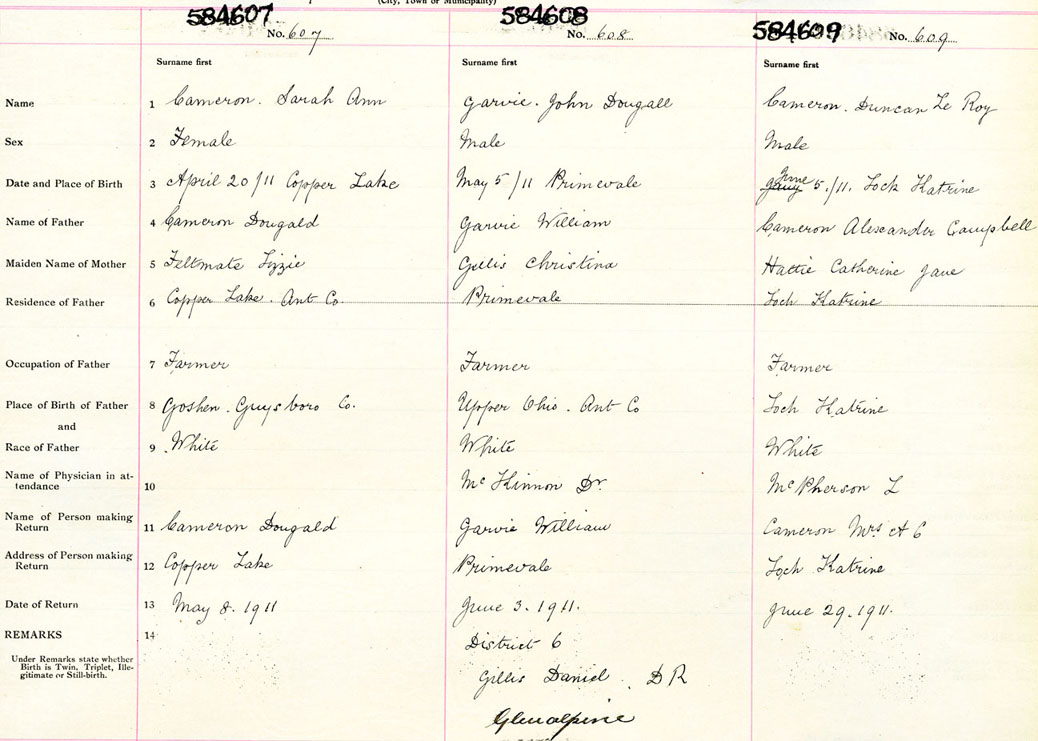 (City, Town or Municipality)
584607 584608 584609
No. 607 No. 608 No. 609
Surname first Surname first Surname first
Name 1 Cameron. Sarah Ann Garvie. John Dougall Cameron. Duncan Le Roy
Sex 2 Female Male Male
Date and Place of Birth 3 April 20/11 Copper Lake May 5/11 Primevale June 5./11. Lock Katrine
Name of Father 4 Cameron Dougald Garvie William Cameron Alexander Campbell
Maiden Name of Mother 5 Feltmate Lizzie Gillis Christina Hattie Catherine Jane
Residence of Father 6 Copper Lake. Ant Co. Primevale Loch Katrine
Occupation of Father 7 Farmer Farmer Farmer
Place of Birth of Father 8 Goshen. Guysboro Co. Upper Ohio. Ant Co Loch Katrine
and
Race of Father 9 White White White
Name of Physician in at-
tendance 10 McKinnon Dr. McPherson L
Name of Person making
Return 11 Cameron Dougald Garvie William Cameron Mrs A C
Address of Person making
Return 12 Copper Lake Primevale Loch Katrine
Date of Return 13 May 8. 1911 June 3. 1911. June 29. 1911.
REMARKS 14 District 6
Under Remarks state whether
Birth is Twin, Triplet, Ille-
gitimate or Still-birth.
Gillis Daniel. D R
Glenalpine